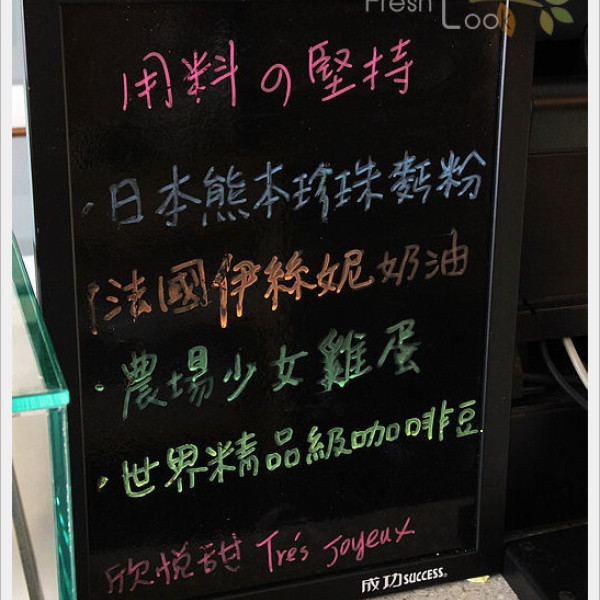 Fresh Look
用料の堅持
·日本熊本珍珠麵粉
·法國伊絲妮奶油
·農場少女雞蛋
·世界精品級咖啡豆
欣悅甜 Très Joyeux
成功SUCCESS®